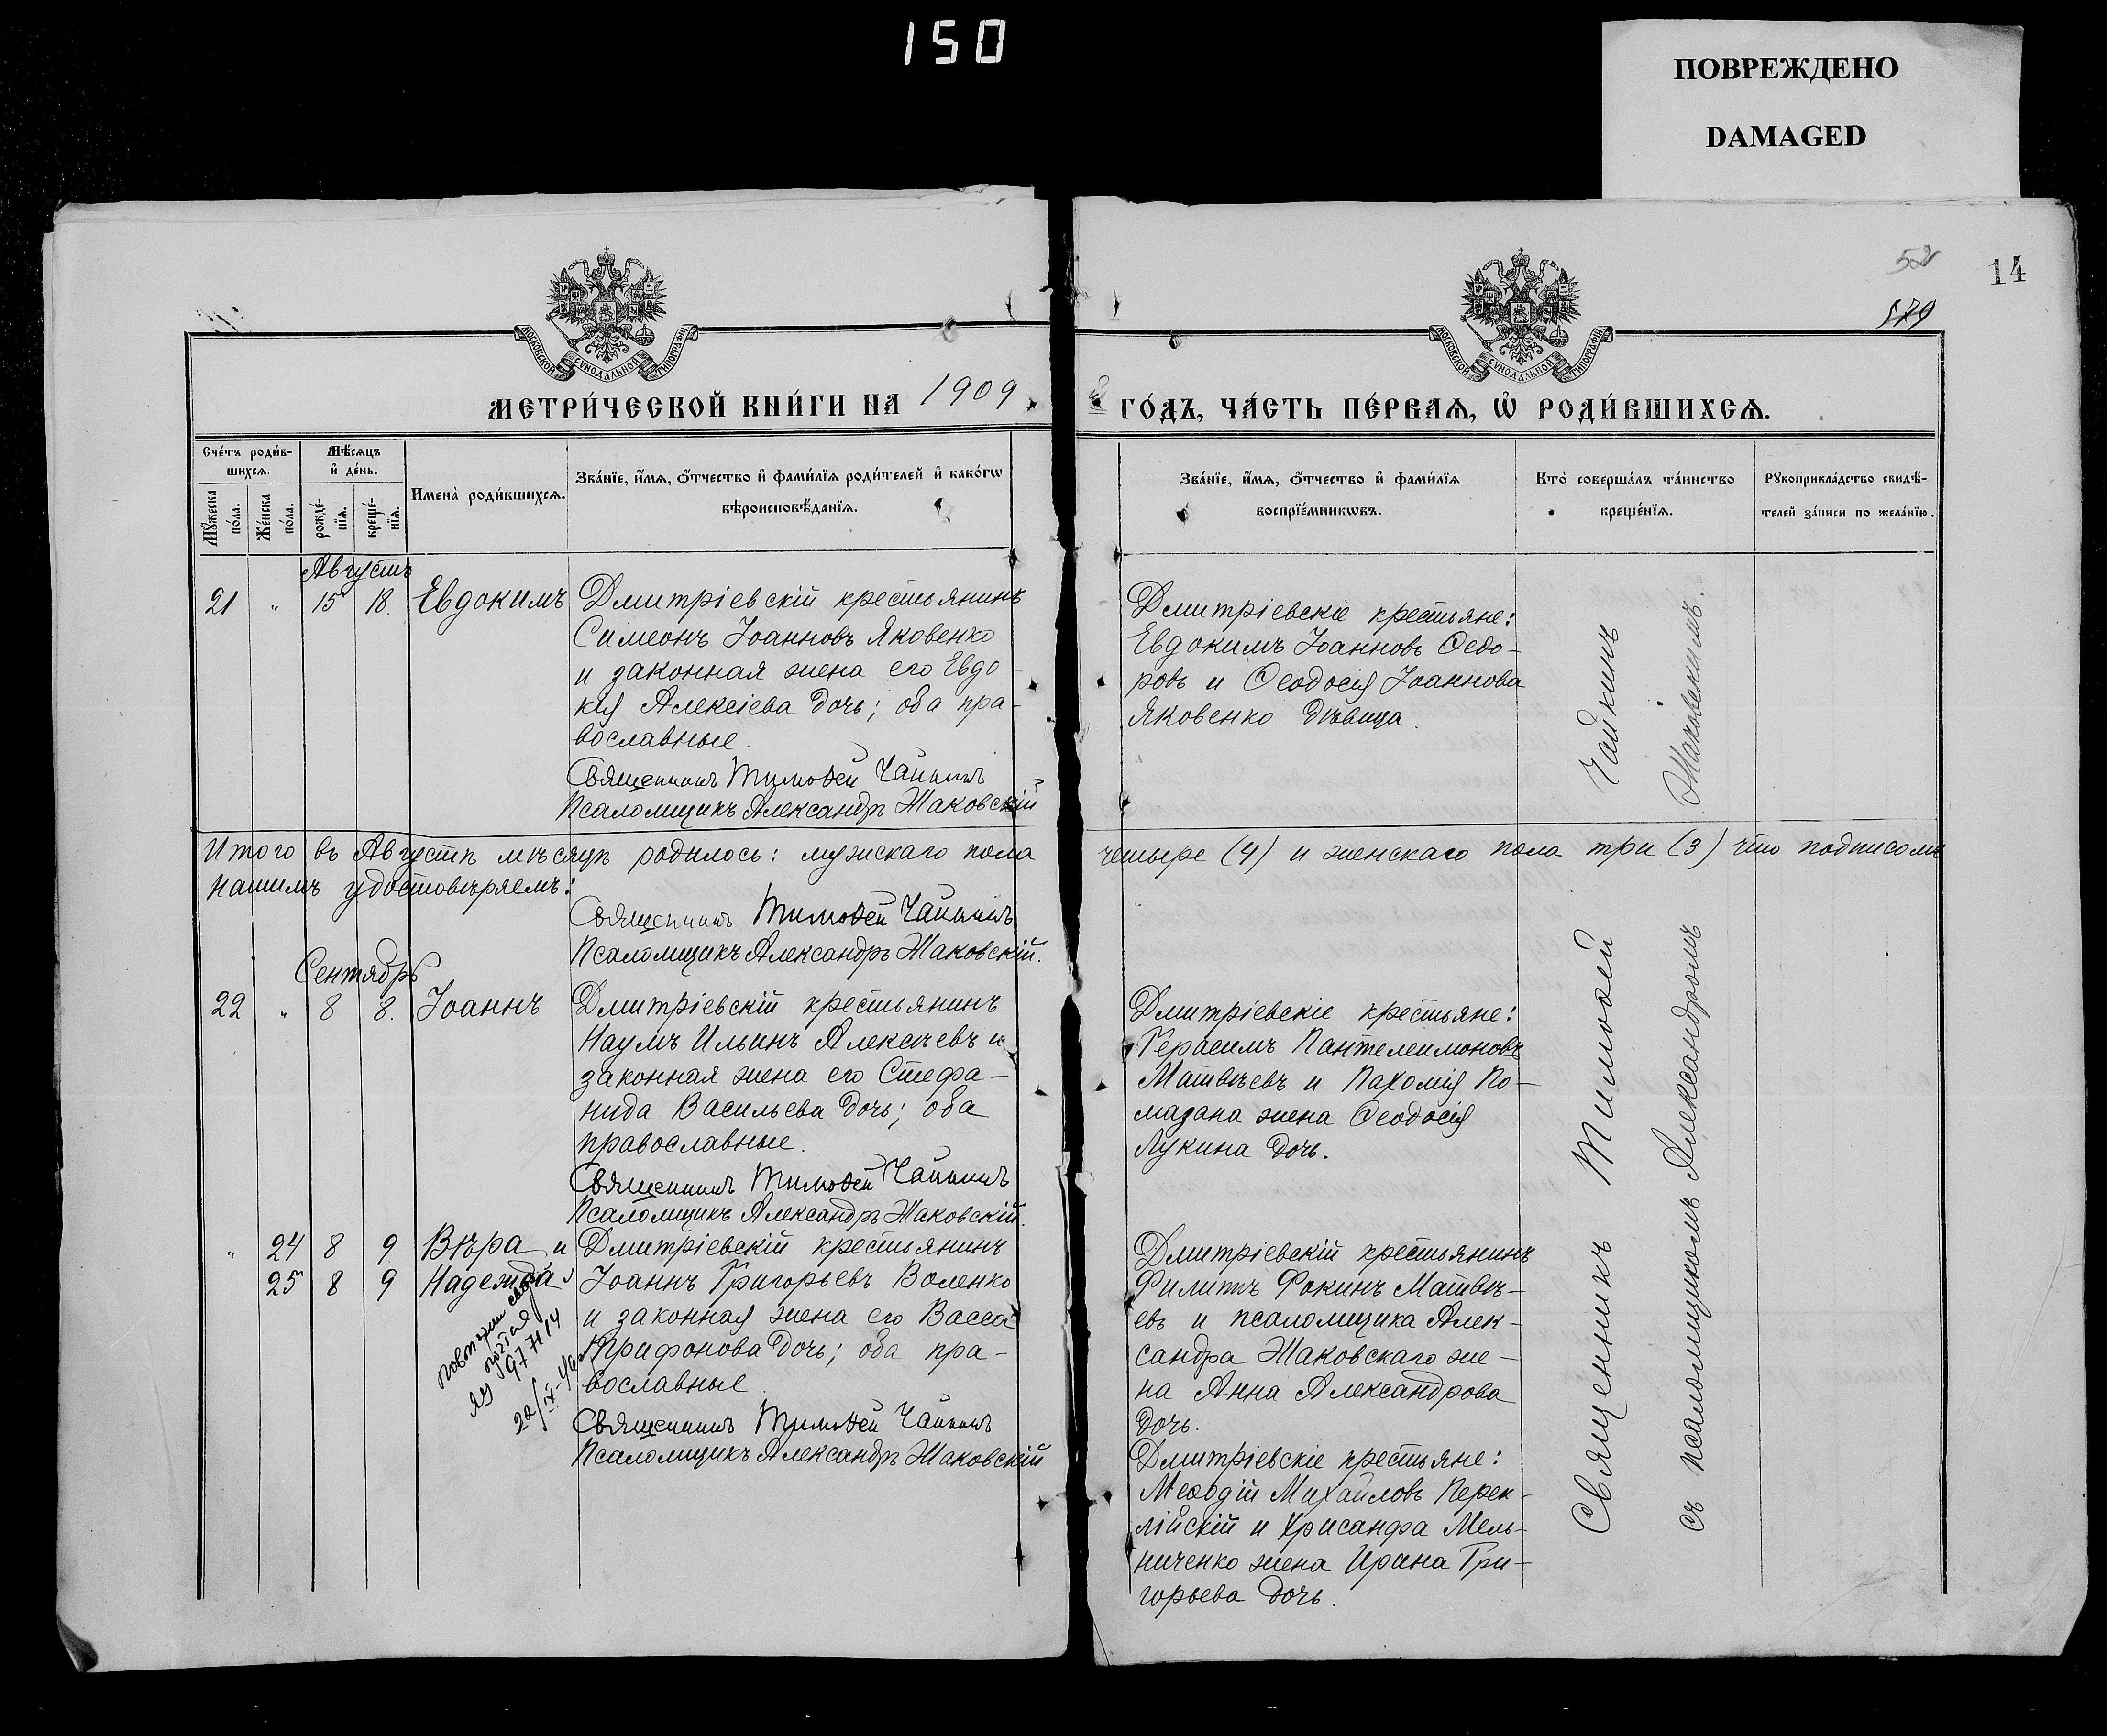 150
ПОВРЕЖДЕНО
DAMAGED
52
14
579
МОСКОВСКОЙ СУНОДАЛЬНОЙ ТИПОГРАФІИ
МОСКОВСКОЙ СУНОДАЛЬНОЙ ТИПОГРАФІИ
МЕТРИ́ЧЕСКОЙ КНИ́ГИ НА 1909
ГО́ДЪ, ЧА́СТЬ ПЕ́РВАѦ, Ѡ҆ РОДИ́ВШИХСѦ.
Сче́тъ роди́в-
шихсѧ.
Мѣ́сѧцъ
и҆ де́нь.
Мꙋ́жеска по́ла.
Же́нска по́ла.
рожде́-
нїѧ.
креще́-
нїѧ.
Имена̀ роди́вшихсѧ.
Зва́нїе, и҆́мѧ, ѻ҆́тчество и҆ фами́лїѧ роди́телей и҆ како́гѡ
вѣроисповѣ́данїѧ.
Зва́нїе, и҆́мѧ, ѻ҆́тчество и҆ фами́лїѧ
воспрїе́мникѡвъ.
Кто̀ соверша́лъ та́инство
креще́нїѧ.
Рꙋкоприкла́дство свидѣ́-
телей за́писи по жела́нїю.
Августъ
21 " 15 18. Евдокимъ Дмитріевскій крестьянинъ
Симеонъ Іоанновъ Яковенко
и законная жена его Евдо-
кія Алексіева дочь; оба пра-
вославные.
Священникъ Тимоѳей Чайкинъ
Псаломщикъ Александръ Жаковскій
Дмитріевскіе крестьяне:
Евдокимъ Іоанновъ Ѳедо-
ровъ и Ѳеодосія Іоаннова
Яковенко дѣвица.
Итого въ Августѣ мѣсяцѣ родилось: мужскаго пола четыре (4) и женскаго пола три (3) что подписомъ
нашимъ удостовѣряемъ:
Священникъ Тимоѳей Чайкинъ
Псаломщикъ Александръ Жаковскій.
Сентябрь
22 " 8 8. Іоаннъ Дмитріевскій крестьянинъ
Наумъ Ильинъ Алексѣевъ и
законная жена его Стефа-
нида Васильева дочь; оба
православные.
Священникъ Тимоѳей Чайкинъ
Псаломщикъ Александръ Жаковскій.
Дмитріевскіе крестьяне:
Герасимъ Пантелеимоновъ
Матвѣевъ и Пахомія По-
мазана жена Ѳеодосія
Лукина дочь.
" 24 8 9 Вѣра и Дмитріевскій крестьянинъ
25 8 9 Надежда Іоаннъ Григорьевъ Воленко
и законная жена его Васса
Трифонова дочь; оба пра-
вославные.
Священникъ Тимоѳей Чайкинъ
Псаломщикъ Александръ Жаковскій
977114
Дмитріевскій крестьянинъ
Филиппъ Фокинъ Матвѣ-
евъ и псаломщика Алек-
сандра Жаковскаго же-
на Анна Александрова
дочь.
Дмитріевскіе крестьяне:
Меѳодій Михайловъ Перек-
лійскій и Хрисанфа Мель-
ниченко жена Ирина Гри-
горьева дочь.
Священникъ Тимоѳей Чайкинъ
съ псаломщикомъ Александромъ Жаковскимъ.